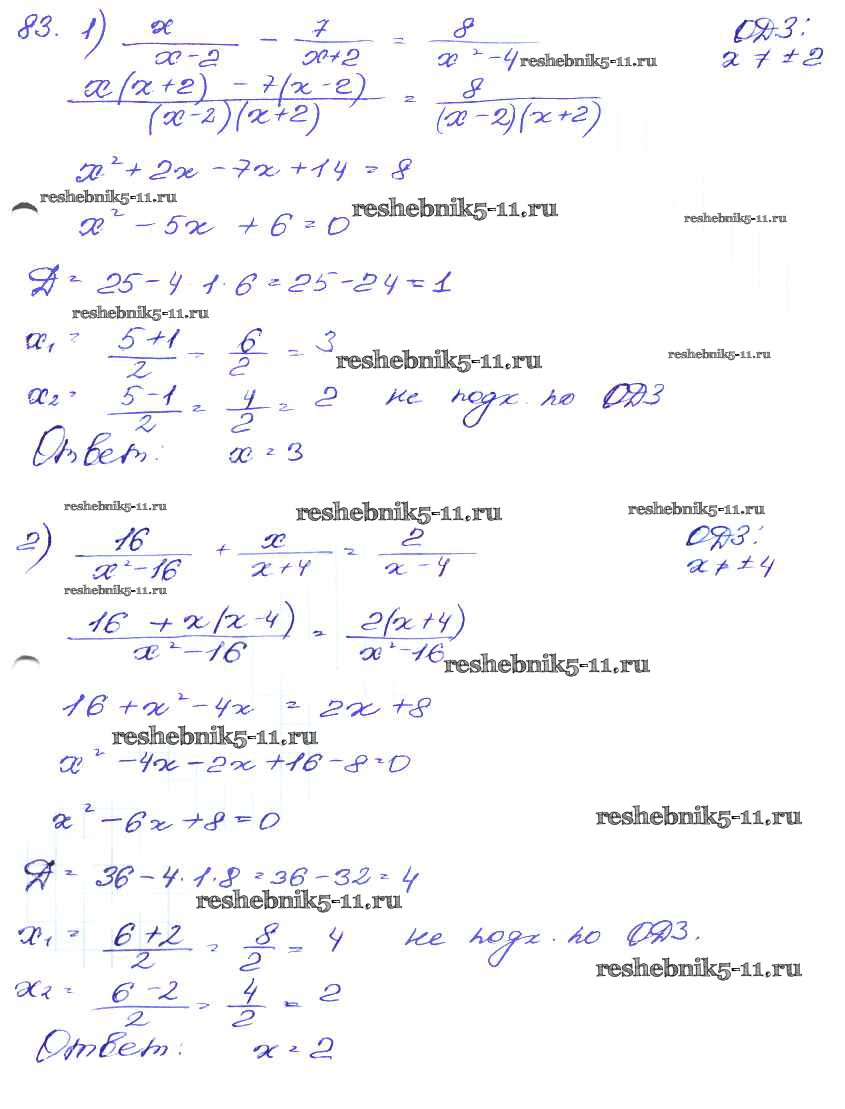 83. 1) x/(x-2) - 7/(x+2) = 8/(x²-4) ОДЗ:
reshebnik5-11.ru x ≠ ±2
(x(x+2) - 7(x-2))/((x-2)(x+2)) = 8/((x-2)(x+2))
x² + 2x - 7x + 14 = 8
reshebnik5-11.ru reshebnik5-11.ru reshebnik5-11.ru
x² - 5x + 6 = 0
Д = 25-4·1·6 = 25-24 = 1
reshebnik5-11.ru
x₁ = (5+1)/2 = 6/2 = 3
reshebnik5-11.ru reshebnik5-11.ru
x₂ = (5-1)/2 = 4/2 = 2 не подх. по ОДЗ
Ответ: x = 3
reshebnik5-11.ru reshebnik5-11.ru reshebnik5-11.ru
2) 16/(x²-16) + x/(x+4) = 2/(x-4) ОДЗ:
reshebnik5-11.ru x ≠ ±4
(16 + x(x-4))/(x²-16) = 2(x+4)/(x²-16)
reshebnik5-11.ru
16 + x² - 4x = 2x + 8
reshebnik5-11.ru
x² - 4x - 2x + 16 - 8 = 0
x² - 6x + 8 = 0
reshebnik5-11.ru
Д = 36-4·1·8 = 36-32 = 4
reshebnik5-11.ru
x₁ = (6+2)/2 = 8/2 = 4 не подх. по ОДЗ.
reshebnik5-11.ru
x₂ = (6-2)/2 = 4/2 = 2
Ответ: x = 2